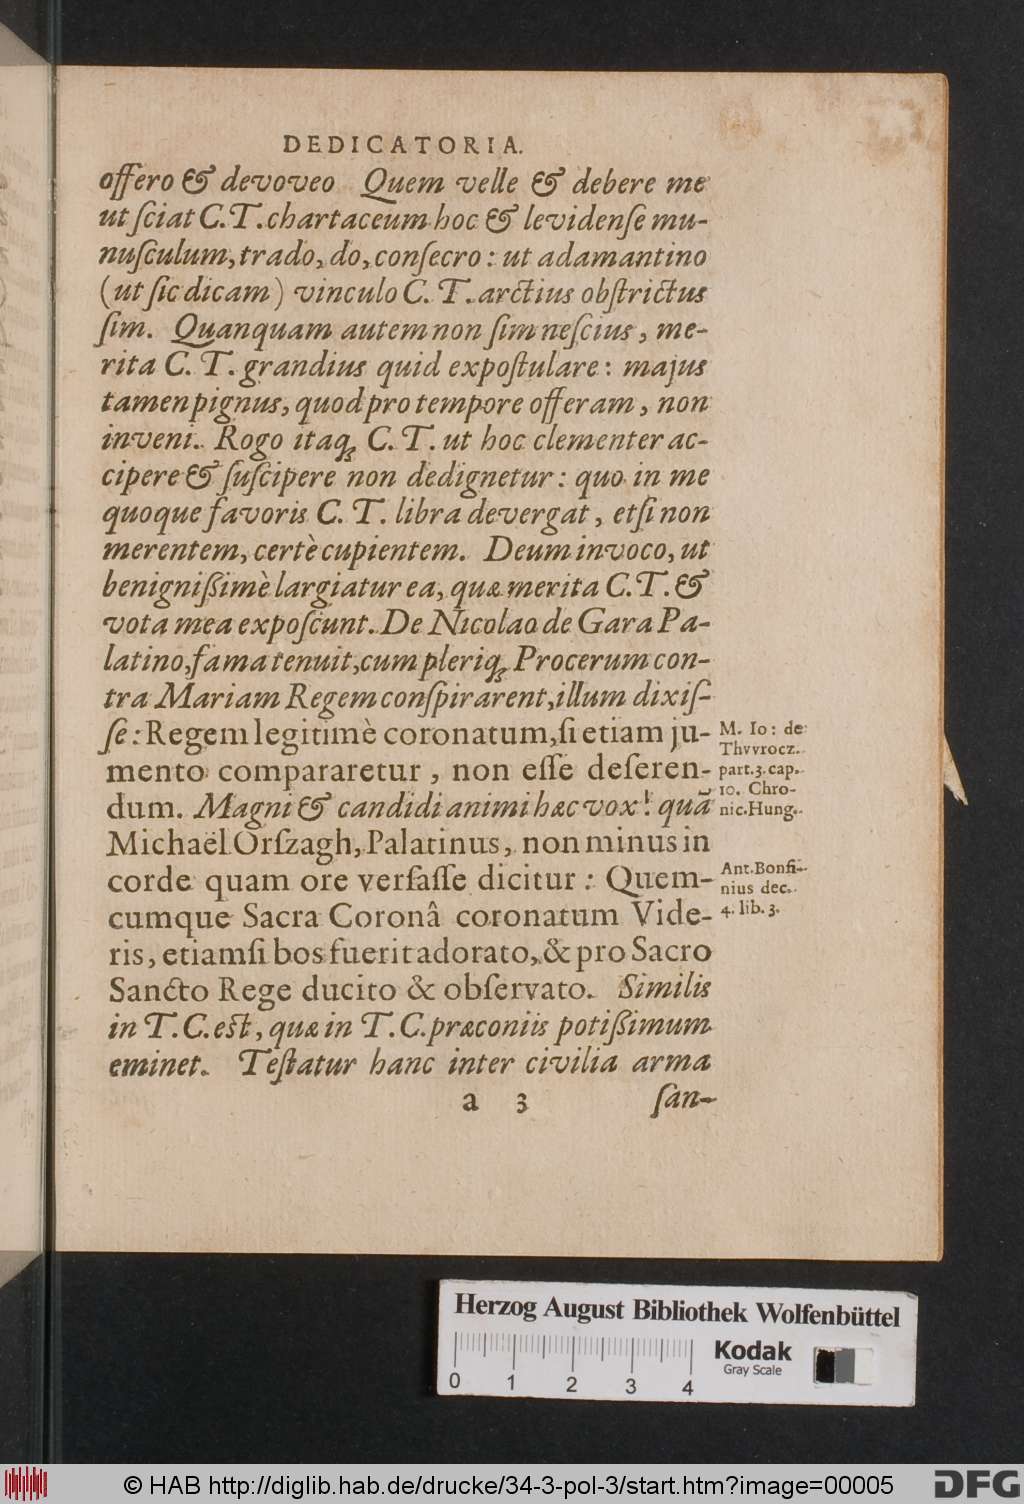 DEDICATORIA.
offero & devoveo Quem velle & debere me
ut ſciat C. T. chartaceum hoc & levidenſe mu-
nuſculum, trado, do, conſecro: ut adamantino
(ut ſic dicam) vinculo C. T. arctius obſtrictus
ſim. Quanquam autem non ſim neſcius, me-
rita C. T. grandius quid expoſtulare: majus
tamen pignus, quod pro tempore offeram, non
inveni. Rogo itaq; C. T. ut hoc clementer ac-
cipere & ſuſcipere non dedignetur: quo in me
quoque favoris C. T. libra devergat, etſi non
merentem, certè cupientem. Deum invoco, ut
benignißimè largiatur ea, quæ merita C. T. &
vota mea expoſcunt. De Nicolao de Gara Pa-
latino, fama tenuit, cum pleriq; Procerum con-
tra Mariam Regem conſpirarent, illum dixiſ-
ſe: Regem legitimè coronatum, ſi etiam ju-
mento compararetur, non eſſe deſeren-
dum. Magni & candidi animi hæc vox! quā
Michaël Orſzagh, Palatinus, non minus in
corde quam ore verſaſſe dicitur: Quem-
cumque Sacra Coronâ coronatum Vide-
ris, etiamſi bos fuerit adorato, & pro Sacro
Sancto Rege ducito & obſervato. Similis
in T. C. eſt, quæ in T. C. præconiis potißimum
eminet. Teſtatur hanc inter civilia arma
a 3 ſan-
M. Io: de
Thvvrocz.
part. 3. cap.
10. Chro-
nic. Hung.
Ant. Bonfi-
nius dec.
4. lib. 3.
Herzog August Bibliothek Wolfenbüttel
0 1 2 3 4
Kodak
Gray Scale
© HAB http://diglib.hab.de/drucke/34-3-pol-3/start.htm?image=00005
DFG